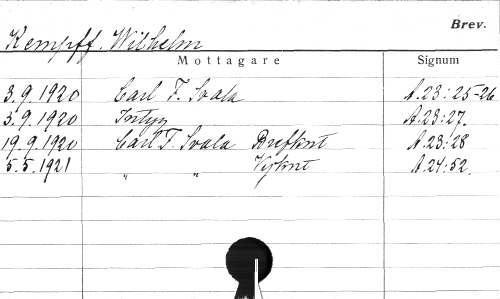 Brev.
Kempff, Wilhelm
Mottagare Signum
3.9.1920 Carl F. Svala A.23:25-26
5.9.1920 Intyg A.23:27.
19.9.1920 Carl F. Svala Brefkort A.23:28
5.5.1921 " " Vykort A.24:52.